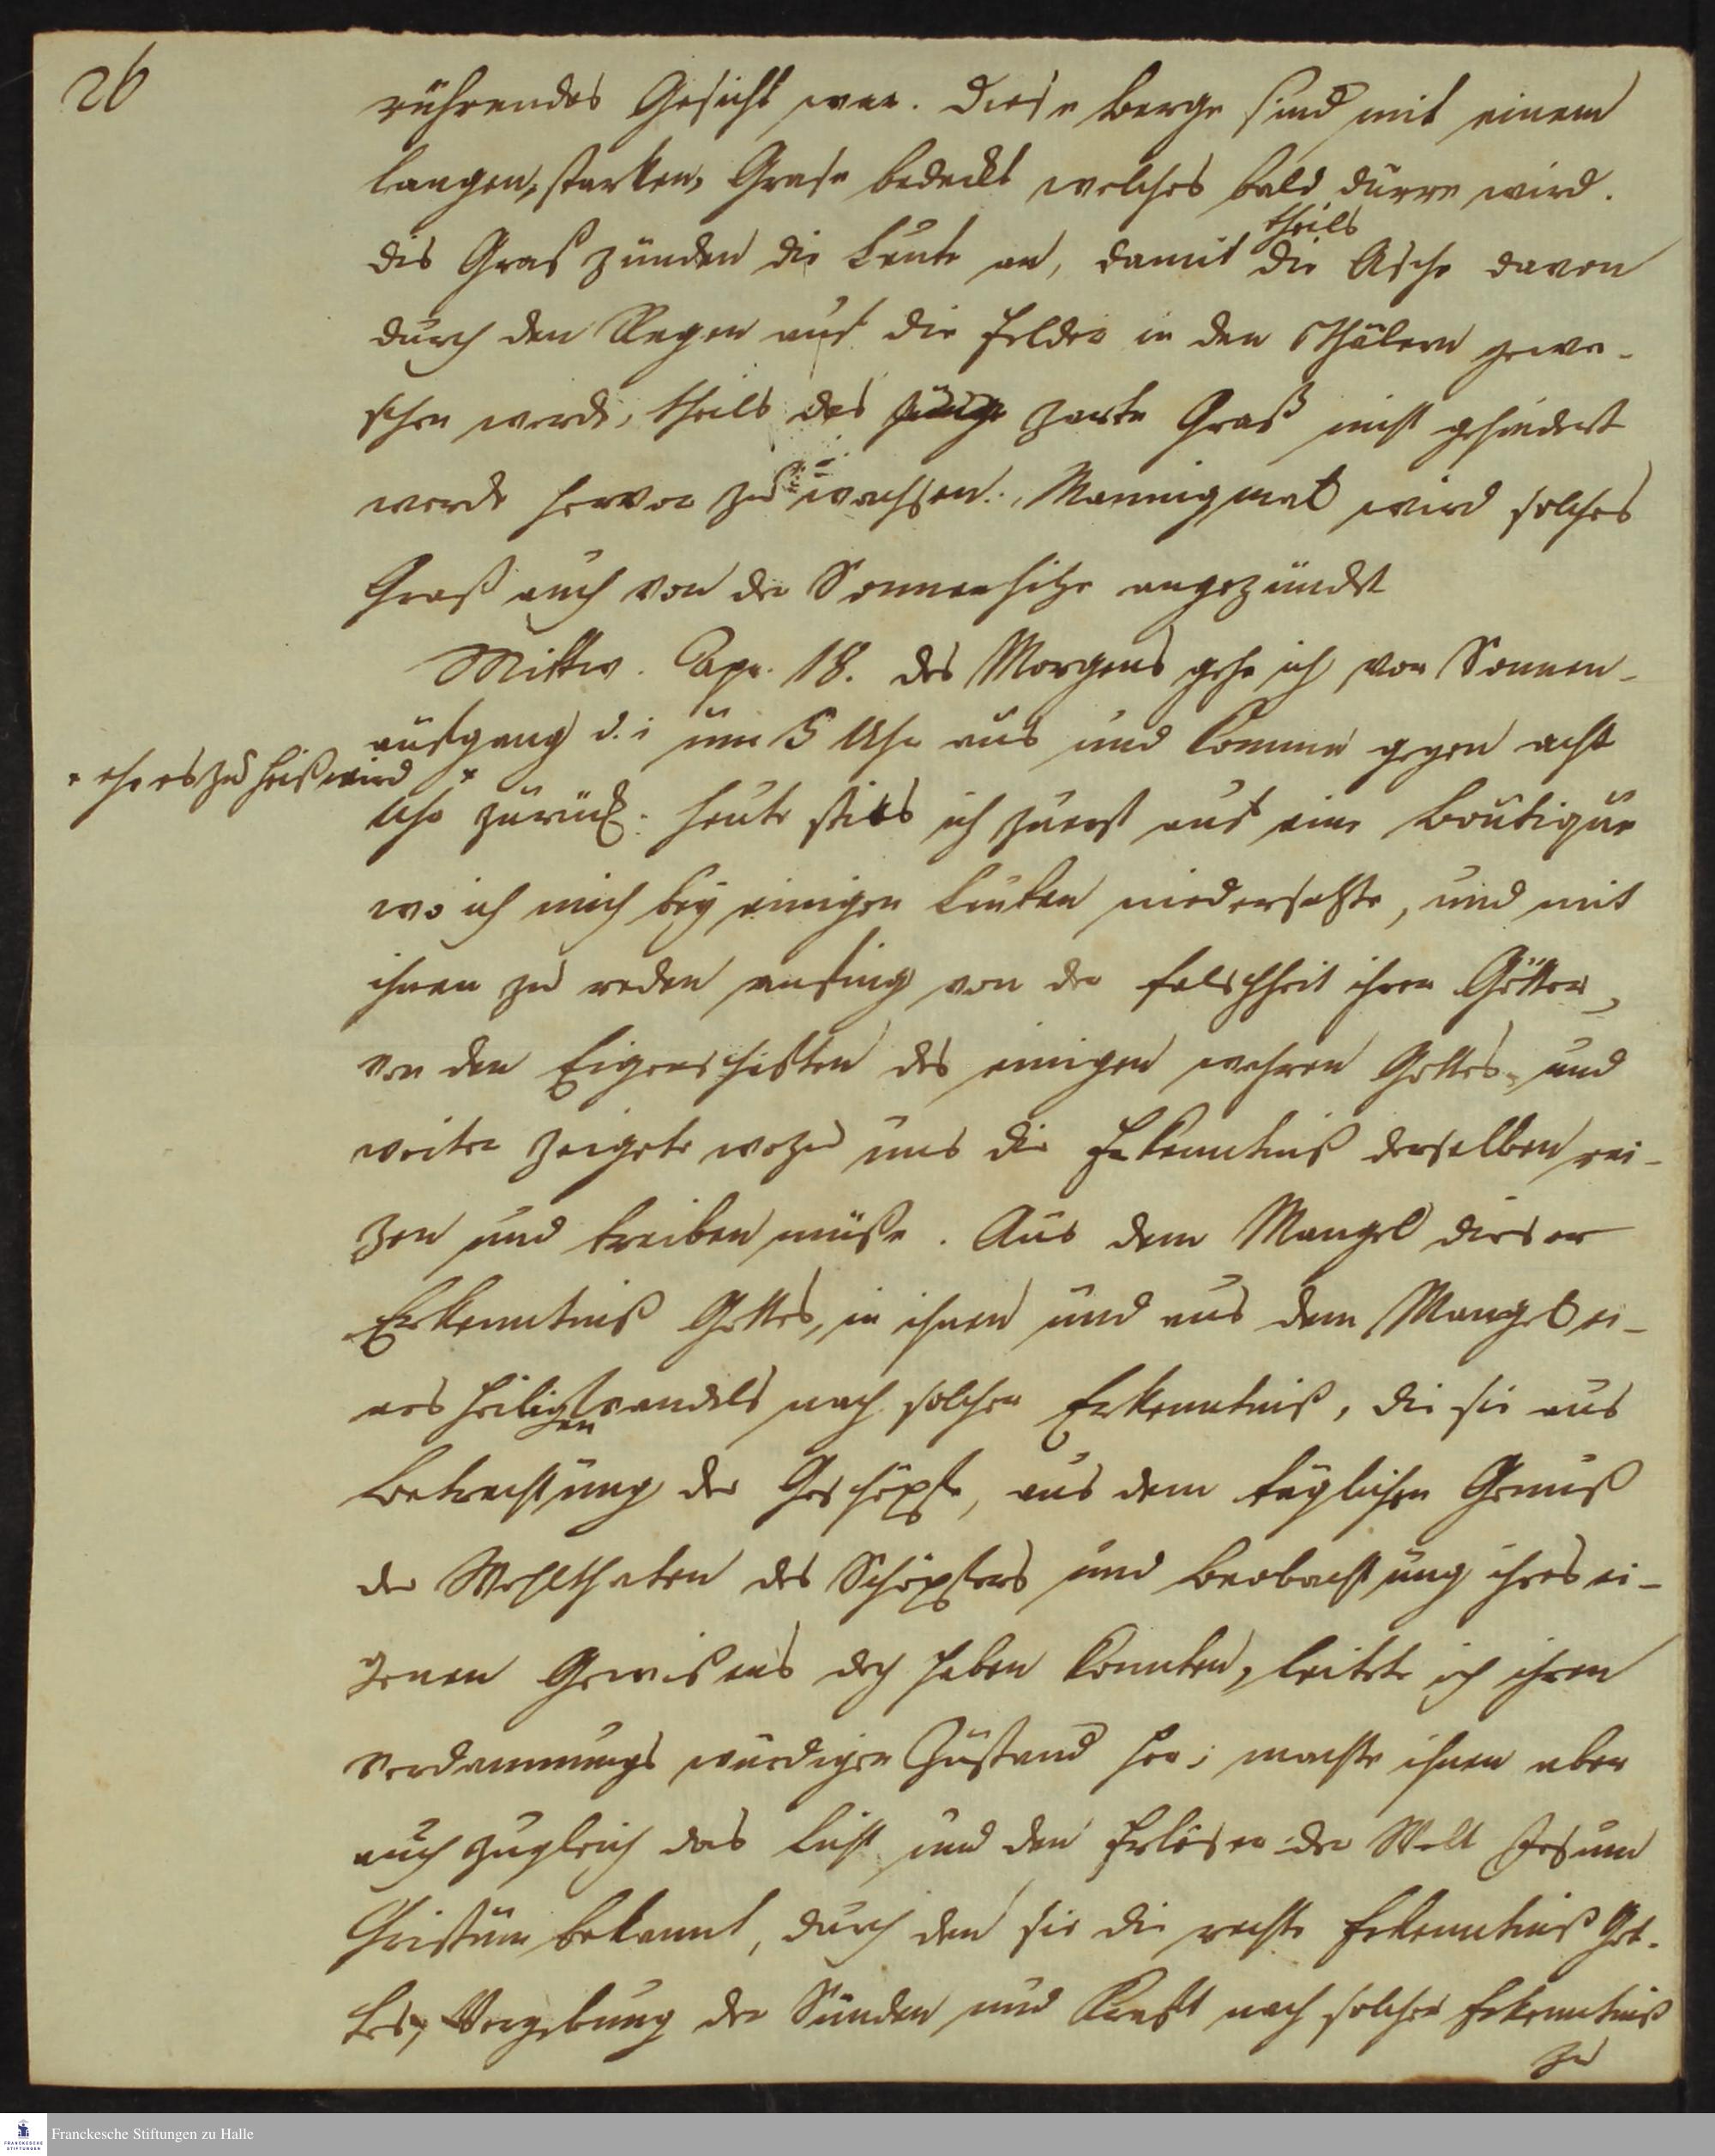 26
rührendes Gesicht war. Diese Berge sind mit einem
langen, starken, Grase bedeckt welches bald dürre wird.
theils
dis Graß zünden die Leute an, damit die Asche davon
durch den Regen auf die Felder in den Thälern gewa-
schen werde, theils das junge zarte Graß nicht gehindert
werde hervor zu wachsen. Mannigmal wird solches
Graß auch von der Sonnenhitze angezündet
Mittw. Apr. 18. des Morgens gehe ich vor Sonnen-
aufgang d. i um 5 Uhr aus und komme gegen acht
* ehe es zu heiß wird *
Uhr zurück. Heute stieß ich zuerst auf eine Boutique
wo ich mich bey einigen Leuten niedersetzte, und mit
ihnen zu reden anfing von der Falschheit ihrer Götter,
von den Eigenschaften des einigen wahren Gottes, und
weiter zeigete wozu uns die Erkenntniß derselben rei-
zen und treiben müße. Aus dem Mangel dieser
Erkenntniß Gottes, in ihnen und aus dem Mangel ei-
nes heiligen Wandels nach solcher Erkenntniß, die sie aus
Betrachtung der Geschöpfe, aus dem täglichen Genuß
der Wohlthaten des Schöpfers und Beobachtung ihres ei-
genen Gewißens doch haben konnten, leitete ich ihren
verdammungs würdigen Zustand her; machte ihnen aber
auch zugleich das Licht und den Erlöser der Welt Jesum
Christum bekannt, durch den sie die rechte Erkenntniß Got-
tes, Vergebung der Sünden und Kraft nach solcher Erkenntniß
zu
Franckesche Stiftungen zu Halle
FRANCKESCHE
STIFTUNGEN